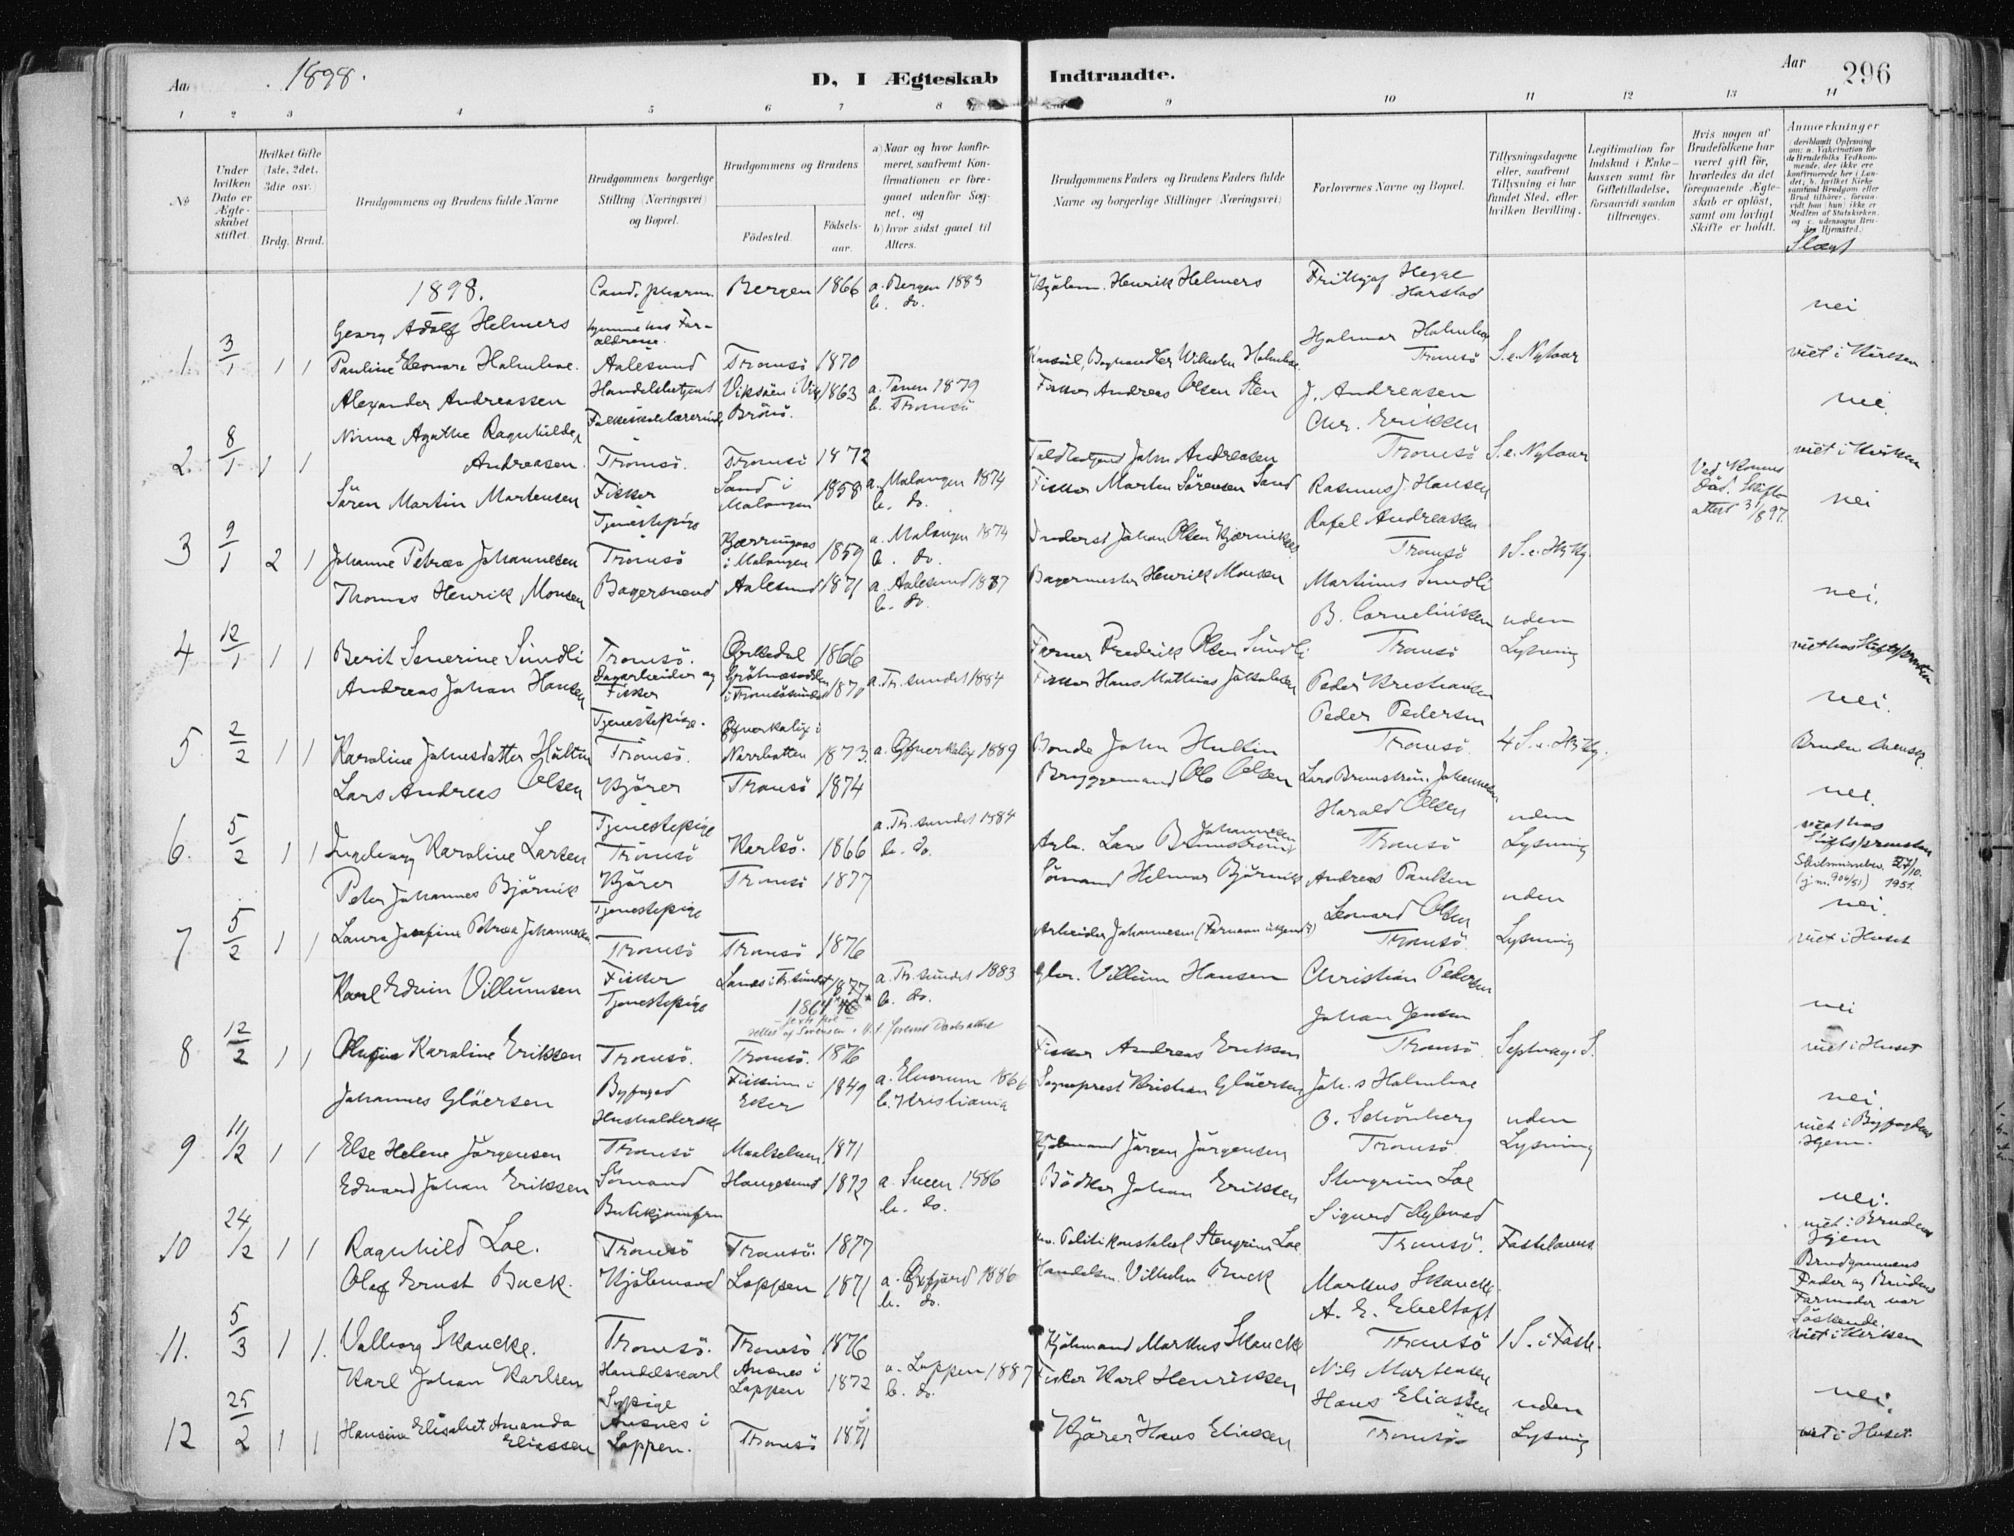 Aar 1898.
D, I Ægteskab Indtraadte.
Aar 296
1 2 3 4 5 6 7 8 9 10 11 12 13 14
No
Under hvilken Dato er Ægteskabet stiftet.
Hvilket Gifte (1ste, 2det, 3die osv.)
Brdg. Brud.
Brudgommens og Brudens fulde Navne
Brudgommens borgerlige Stilling (Næringsvei) og Bopæl.
Brudgommens og Brudens
Fødested.
Fødselsaar.
a) Naar og hvor konfirmeret, saafremt Konfirmationen er foregaaet udenfor Sognet, og
b) hvor sidst gaaet til Alters.
Brudgommens Faders og Brudens Faders fulde Navne og borgerlige Stillinger (Næringsvei)
Forlovernes Navne og Bopæl.
Tillysningsdagene eller, saafremt Tillysning ei har fundet Sted, efter hvilken Bevilling.
Legitimation for Indskud i Enkekassen samt for Giftetilladelse, forsaavidt saadan tiltrænges.
Hvis nogen af Brudefolkene har været gift før, hvorledes da det foregaaende Ægteskab er opløst, samt om lovligt Skifte er holdt.
Anmærkninger
Slægt
1898.
Georg Adolf Helmers Cand. pharm. Bergen 1866 a. Bergen 1883 b. do. Kjøbm. Henrik Helmers Frithjof Hegge Harstad nei
1. 3/1 1 1 Pauline Eleonore Holmboe. Aalesund Tromsö 1870 Konsul, Boghandler Wilhelm Holmboe Hjalmar Holmboe Tromsö S. e. Nytaar viet i Kirken
Alexander Andreassen Handelsbetjent 1863 a. Tanen 1879 b. Tromsö Fisker Andreas Olsen Sten J. Andreasen nei.
2. 8/1 1 1 Ninna Agathe Ragnhilde Andreasen. Folkeskolelærerinde Tromsö. Tromsö 1872 Toldbetjent John Andreasen Chr. Eriksen Tromsö S. e. Nytaar viet i Kirken
Sören Martin Mortensen Fisker Sand i Malangen 1858 a. Malangen 1874 b. do. Fisker Morten Sörensen Sand Rasmus J. Hansen Ved Konens Död. Skifteattest 31/8 97. nei
3 9/1 2 1 Johanne Petrea Johannesen Tjenestepige Tromsö i Malangen 1859 a. Malangen 1874 b. do. Inderst Johan Olsen Rafel Andreassen Tromsö 1 S. e. H3Kg.
Thomas Henrik Monsen Bagersvend Aalesund 1871 a. Aalesund 1887 b. do. Bagermester Henrik Monsen Martinus Sundli nei.
4 12/1 1 1 Berit Severine Sundli Tromsö. Orkedal 1866 Farver Fredrik Olsen Sundli B. Corneliussen Tromsö uden Lysning viet hos Stiftsprovsten
Andreas Johan Hansen Dagarbeider og Fisker i Tromsösundet 1870 a. Tr. sundet 1884 Fisker Hans Mathias Jakobsen Peder Kristiansen nei.
5. 2/2 1 1 Karoline Johnsdatter Hultin Tjenestepige. Tromsö. Ofverkalix i Norrbotten 1873. a. Ofverkalix 1889 Bonde John Hultin Peder Pedersen Tromsö. 4 S. e. H3Kg. Bruden svensk.
Lars Andreas Olsen Kjörer Tromsö 1874 Bryggemand Ole Olsen Lars Brunström Johannesen. nei.
6. 5/2 1 1 Ingeborg Karoline Larsen Tjenestepige Tromsö Karlsö. 1866 a. Tr. sundet 1884 b. do. Arb. Lars Brunström Johannesen Harald Olsen Tromsö uden Lysning viet hos Stiftsprovsten
Skilsmissebev. 27/10. 1951.
Peter Johannes Björnik Kjörer Tromsö 1877 Sömand Helmer Björnik Andreas Paulsen nei.
7 5/2 1 1 Laura Josefine Petrea Johannesen Tjenestepige Tromsö Tromsö 1876 Arbeider Johannesen (Fornavn ukjendt) Leonard Olsen Tromsö. uden Lysning viet i Huset
Karl Edvin Villumsen Fisker Lanes i Tr. sundet 1877 a. Tr. sundet 1883 b. do. Glsr. Villum Hansen Christian Pedersen nei
8 12/2 1 1 Olufine Karoline Eriksen Tjenestepige Tromsö. Tromsö. 1876 Fisker Andreas Eriksen Johan Jensen Tromsö. Septuag. S. viet i Huset
Johannes Glöersen Byfoged Eker 1849 a. Elverum 1866 b. Kristiania Sogneprest Kristian Glöersen Joh. s Holmboe nei.
9 11/2 1 1 Else Helene Jörgensen Husholderske Tromsö Maalselven. 1871 Kjöbmand Jörgen Jörgensen O. Schönberg Tromsö. uden Lysning viet i Byfogdens Hjem.
Edvard Johan Eriksen Sömand Haugesund 1872 a. Sveen 1886 b. do. Bödker Johan Eriksen Stengrim Loe nei.
10 24/2 1 1 Ragnhild Loe. Butikjomfru Tromsö Tromsö. 1877 Politikonstabel Stengrim Loe Sigurd Tromsö. Fastelavns. viet i Brudens Hjem
Olaf Ernst Buck. Kjöbmand Loppen 1871 a. Öxfjord 1886 b. do. Handelsm. Vilhelm Buck Markus Skancke Brudgommens Fader og Brudens Farmoder var Söskende.
11. 5/3 1 1. Valborg Skancke. Tromsö. Tromsö 1876 Kjöbmand Markus Skancke A. E. Ebeltoft Tromsö 1 S. i Faste. viet i Kirken
Karl Johan Karlsen Handelskarl Ausnes i Loppen 1872 a. Loppen 1887 b. do. Fisker Karl Henriksen Nils Mortensen nei.
12 25/2 1 1 Hansine Elisabet Amanda Eliassen Ausnes i Loppen. Tromsö 1871 Kjörer Hans Eliassen Hans Eliassen Tromsö uden Lysning viet i Huset.